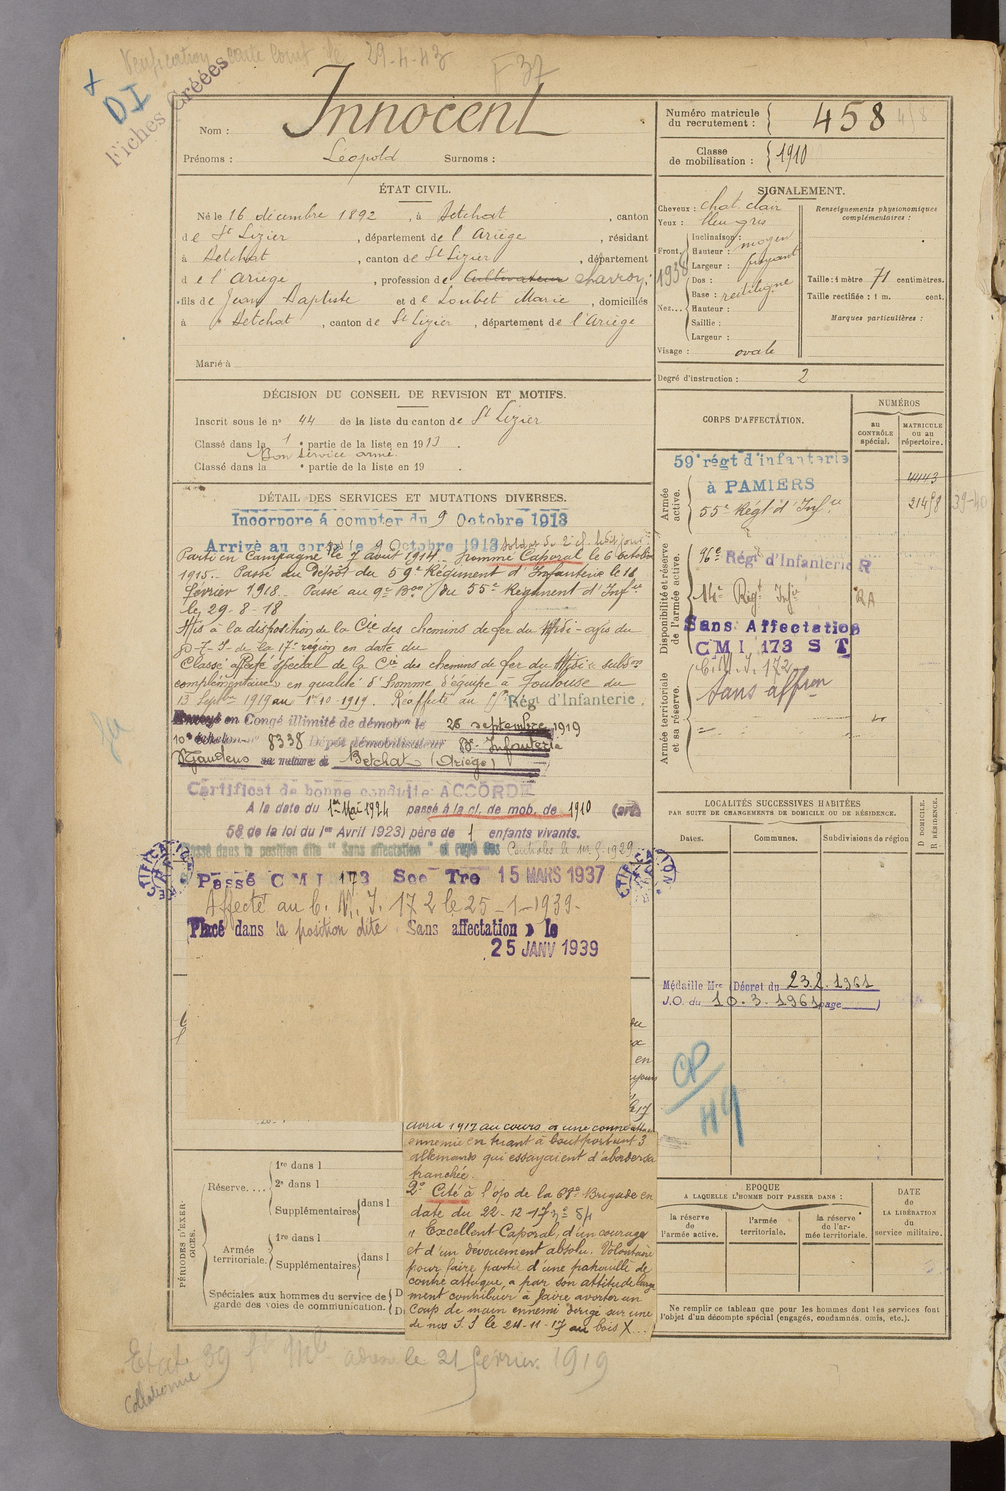 Vérification carte comb. le 29-4-43
F 37
+
DI
Fiches Créées
Nom : Innocent
Prénoms : Léopold Surnoms :
Numéro matricule du recrutement : 458
Classe de mobilisation : 1910
ÉTAT CIVIL.
Né le 16 décembre 1892, à Betchat, canton
de St Lizier, département de l'Ariège, résidant
à Betchat, canton de St Lizier, département
de l'Ariège, profession de Cultivateur
fils de Jean Baptiste et de Loubet Marie, domiciliés
à Betchat, canton de St Lizier, département de l'Ariège
Marié à
SIGNALEMENT.
Cheveux : chat. clair
Yeux : bleu gris
Front. Inclinaison : moyen
Hauteur :
Largeur : fuyant
1938
Nez... Dos :
Base : rectiligne
Hauteur :
Saillie :
Largeur :
Visage : ovale
Renseignements physionomiques complémentaires :
Taille : 1 mètre 71 centimètres.
Taille rectifiée : 1 m. cent.
Marques particulières :
Degré d'instruction : 2
DÉCISION DU CONSEIL DE REVISION ET MOTIFS.
Inscrit sous le no 44 de la liste du canton de St Lizier
Classé dans la 1e partie de la liste en 1913.
Bon service armé.
Classé dans la e partie de la liste en 19 .
CORPS D'AFFECTATION.
NUMÉROS
au CONTRÔLE spécial.
MATRICULE ou au répertoire.
Armée active.
59e régt d'infanterie
à PAMIERS
4443
55e Régt d'Infie
21458
39-40
Disponibilité et réserve de l'armée active.
96e Régt d'Infanterie R
14e Regt Infie
RA
Sans Affectation
CMI 173 ST
C.M.I. 172
Armée territoriale et sa réserve.
Sans affon
DÉTAIL DES SERVICES ET MUTATIONS DIVERSES.
Incorporé à compter du 9 Octobre 1913
Arrivé au corps le 9 Octobre 1913 soldat de 2e cl. ledit jour
Parti en Campagne le 7 août 1914. Nommé Caporal le 6 octobre
1915. Passé au Dépôt du 59e Régiment d'Infanterie le 18
février 1918. Passé au 9e Bon du 55e Régiment d'Infie
le 29-8-18
Mis à la disposition de la Cie des chemins de fer du Midi - avis du
de la 17e région en date du
Classé affecté spécial de la Cie des chemins de fer du Midi subdon
complémentaire en qualité d'homme d'équipe à Toulouse du
13 Septbre 1919 au 1er 10-1919. Réaffecté au Régt d'Infanterie.
Envoyé en Congé illimité de démobon le 26 septembre 1919
10e échelon no 8338 Dépôt démobilisateur 83e Infanterie
St Gaudens se retire à Betchat (Ariège)
Certificat de bonne conduite ACCORDÉ
A la date du 1er Mai 1924 passé à la cl. de mob. de 1910 (art
58 de la loi du 1er Avril 1923) père de 1 enfants vivants.
Classé dans la position dite "Sans affectation" et rayé des Contrôles le
Passé CMI 173 Sec Tre 15 MARS 1937
Affecté au C.M.I. 172 le 25-1-1939-
Placé dans la position dite « Sans affectation » le
25 JANV 1939
LOCALITÉS SUCCESSIVES HABITÉES
PAR SUITE DE CHANGEMENTS DE DOMICILE OU DE RÉSIDENCE.
Dates.
Communes.
Subdivisions de région
D. DOMICILE. R. RÉSIDENCE.
Médaille Mre (Décret du 23.2.1961
J.O. du 10.3.1961 page )
CP/49
avril 1917 au cours d'une contre attaque
ennemie en tuant à bout portant 3
allemands qui essayaient d'aborder sa
tranchée.
2o Cité à l'op de la 68e Brigade en
date du 22-12-17 no 84
"Excellent Caporal, d'un courage
et d'un dévouement absolu. Volontaire
pour faire partie d'une patrouille de
contre attaque, a par son attitude large
ment contribuer à faire avorter un
Coup de main ennemi dirigé sur une
de nos le 24-11-17 au bois X...
PÉRIODES D'EXERCICES.
Réserve.... 1re dans l
2e dans l
Supplémentaires dans l
Armée territoriale. 1re dans l
Supplémentaires dans l
Spéciales aux hommes du service de garde des voies de communication.
EPOQUE
A LAQUELLE L'HOMME DOIT PASSER DANS :
la réserve de l'armée active.
l'armée territoriale.
la réserve de l'armée territoriale.
DATE de LA LIBÉRATION du service militaire.
Ne remplir ce tableau que pour les hommes dont les services font
l'objet d'un décompte spécial (engagés, condamnés, omis, etc.).
Etat 39
le 21 février 1919
Collationné